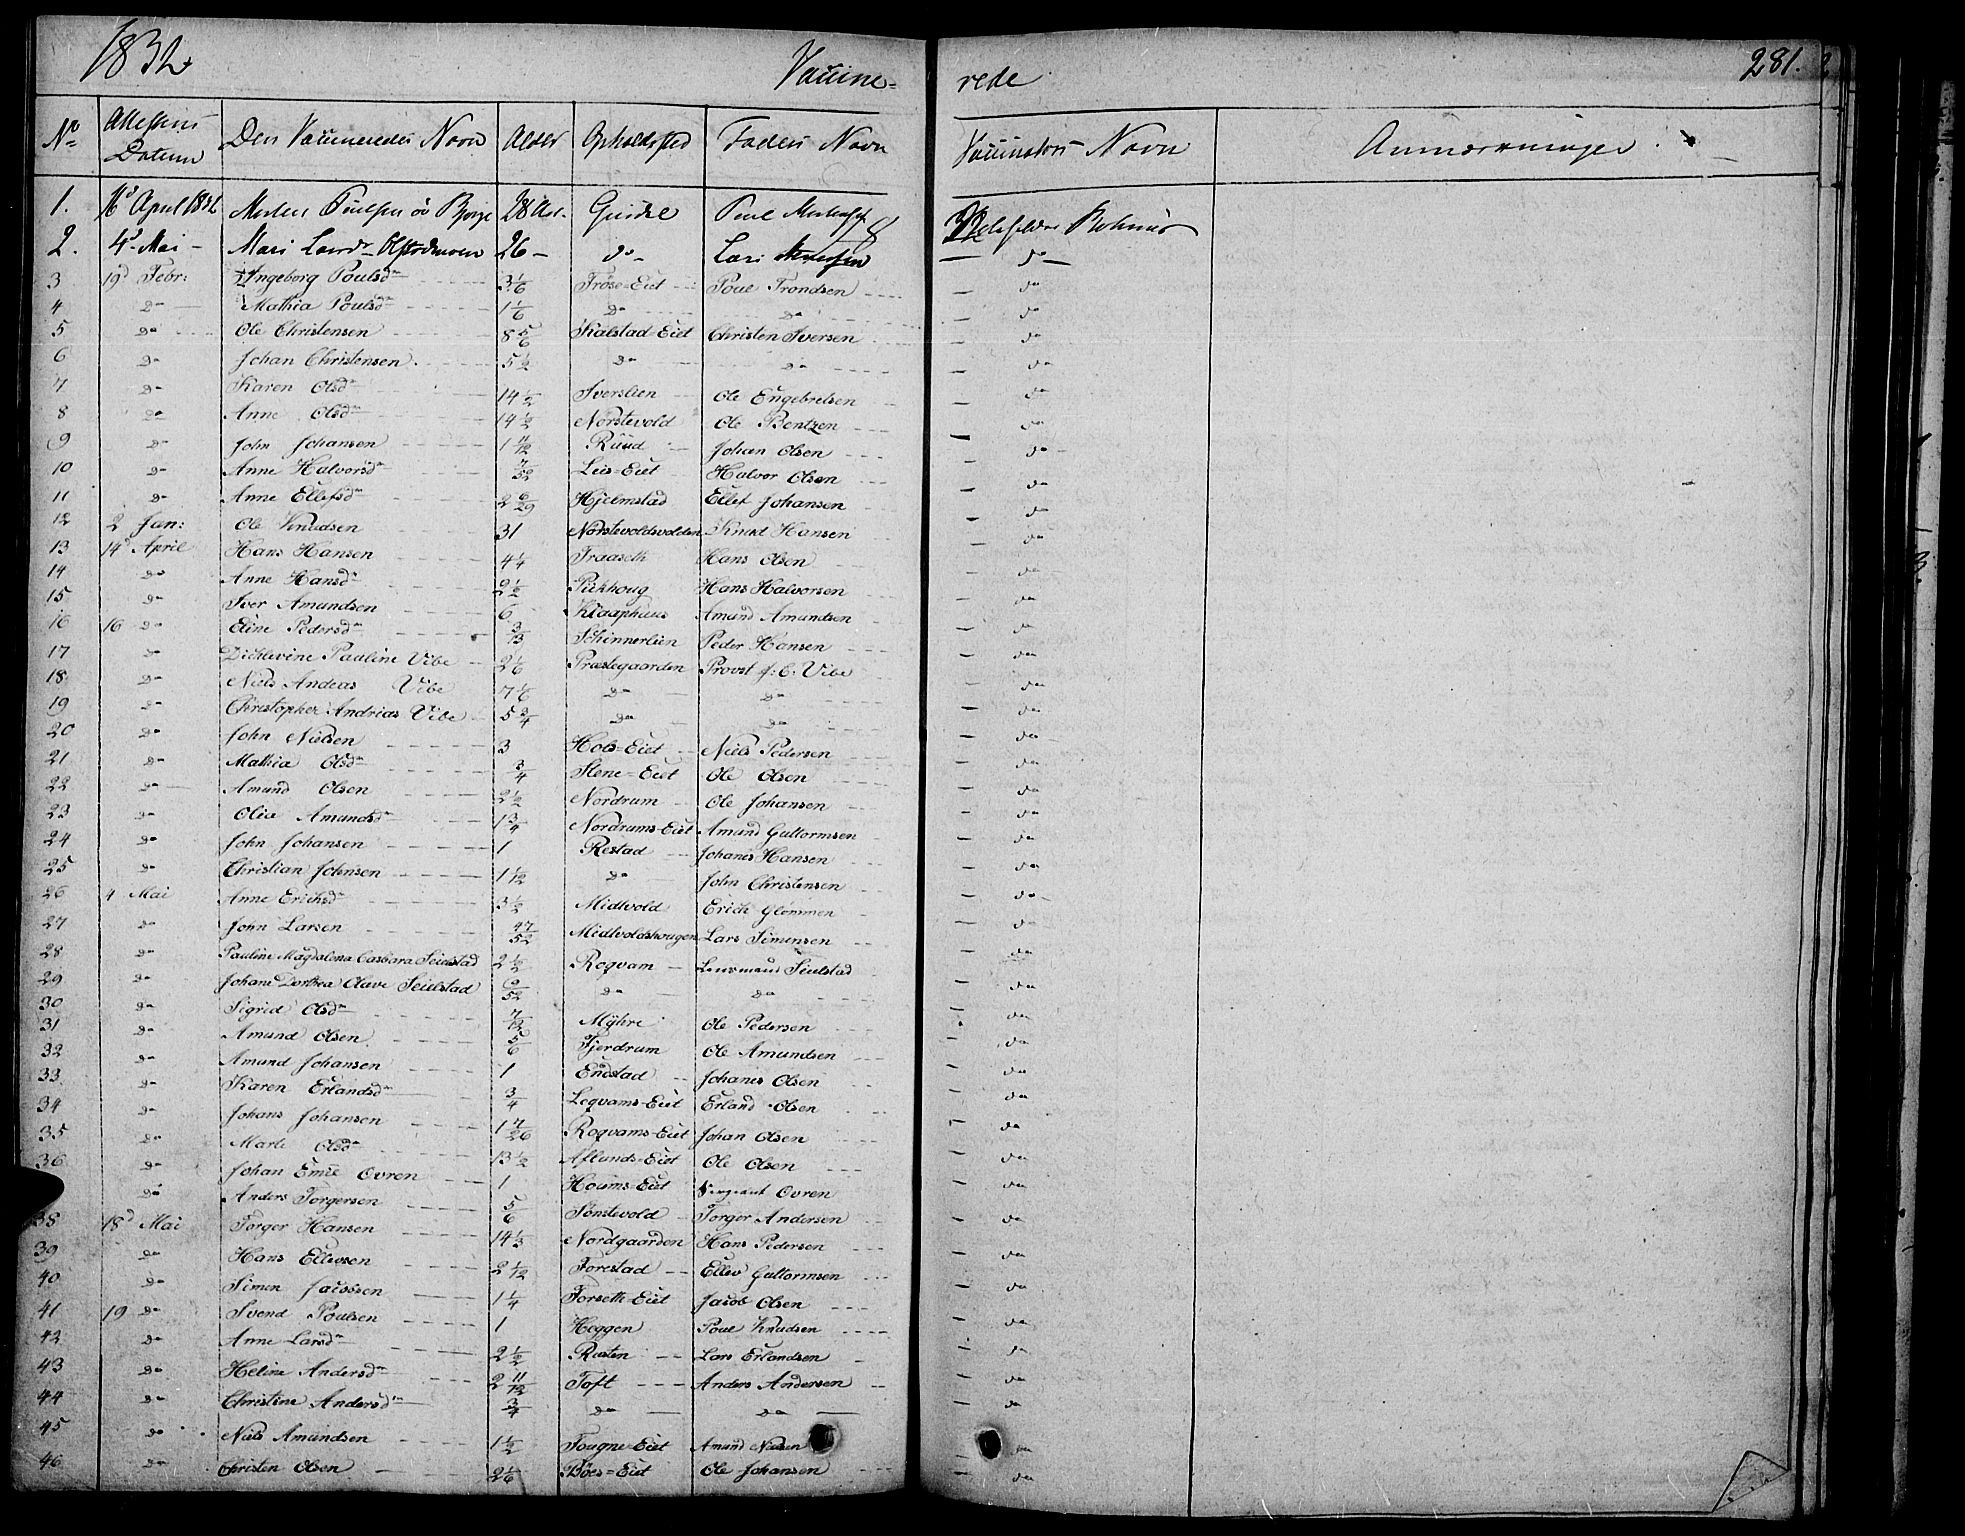 1832 Vaccine= rede 281.
No Attestens Datum Den Vaccineredes Navn Alder Opholdsted Faders Navn Vaccinators Navn Anmærkninger
1. 16d April 1832 Morten Poulsen Bjørge 28 Aar. Poul
2. 4d Mai - Mari Larsdr 26 - do - Lars - do -
3 19d Febr: Ingeborg Poulsdr 3 1/6 Frøse=Eiet Poul Trondsen - do
4 do Mathia Poulsdr 1 1/6 do do - do
5 do Ole Christensen 8 5/6 Kalstad=Eiet Christen Iversen - do
6 do Johan Christensen 5 1/2 do do - do
7 do Karen Olsdr 14 1/2 Iverslien Ole Engebretsen - do
8 do Anne Olsdr 14 1/2 Nørstevold Ole Bentzen - do
9 do John Johansen 1 11/12 Ruud Johan Olsen - do
10 do Anne Halvorsdr 7/52 Leis=Eiet Halvor Olsen - do
11 do Anne Ellefsdr 2 6/29 Hjelmstad Ellef Johansen - do
12 2 Jan: Ole Knudsen 31 Nørstevoldsvolden Knud Hansen - do
13 14d April Hans Hansen 4 1/4 Fraaseth Hans Olsen - do
14 do Anne Hansdr 2 1/2 Pukhoug Hans Halvorsen - do
15 do Iver Amundsen 6 Klaaphuus Amund Amundsen - do
16 16 do Eline Pedersdr 3/13 Schinnerlien Peder Hansen - do
17 do Dichlevine Pauline Vibe 2 1/6 Præstegaarden Provst J: C. Vibe - do
18 do Niels Andreas Vibe 7 1/6 do do - do
19 do Christopher Andrias Vibe 5 3/4 do do - do
20 do John Nielsen 3 Hols=Eiet Niels Pedersen - do
21 do Mathia Olsdr 3/4 Stene=Eiet Ole Olsen - do
22 do Amund Olsen 2 1/2 Nordrum Ole Johansen - do
23 do Olia Amundsdr 1 3/4 Nordrums=Eiet Amund Guttormsen - do
24 do John Johansen 1 Restad Johanes Hansen - do
25 do Christian Johnsen 1 1/12 do John Christensen - do
26 4 Mai Anne Erichsdr 3 1/2 Midtvold Erich Glømmen - do
27 do John Larsen 47/52 Midtvoldshougen Lars Simensen - do
28 do Pauline Magdalena Barbara Seielstad 2 1/2 Roqvam Lensmand Seielstad - do
29 do Johane Dorthea Olave Seielstad 6/52 do do - do
30 do Sigrid Olsdr 7/12 Myhre Ole Pedersen - do
31 do Amund Olsen 5/6 Fjerdrum Ole Amundsen - do
32 do Amund Johansen 1 Enostad Johanes Olsen - do
33 do Karen Erlandsdr 3/4 Leqvams=Eiet Erland Olsen - do
34 do Johans Johansen 1 7/26 Roqvams=Eiet Johan Olsen - do
35 do Marte Olsdr 13 1/2 Aflunds=Eiet Ole Olsen - do
36 do Johan Emil Ovren 1 Houms=Eiet Sergeant Ovren - do
do Anders Torgersen 5/6 Sønstevold Torger Andersen - do
38 18d Mai Torger Hansen 14 1/3 Nordgaarden Hans Pedersen - do
39 do Hans Ellevsen 2 1/12 Forestad Ellev Guttormsen - do
40 do Simen 1 1/4 Forseth=Eiet Jacob Olsen - do
41 19 do Svend Poulsen 1 Heggen Poul Knudsen - do
42 do Anne Larsdr 2 1/2 Rusten Lars Erlandsen - do
43 do Heline Andersdr 2 11/12 Toft Anders Andersen - do
44 do Christine Andersdr 3/4 do do - do
45 do Niels Amundsen 1 1/2 Tougne=Eiet Amund Nielsen - do
46 do Christen Olsen 2 1/6 Bøes=Eiet Ole Johansen - do